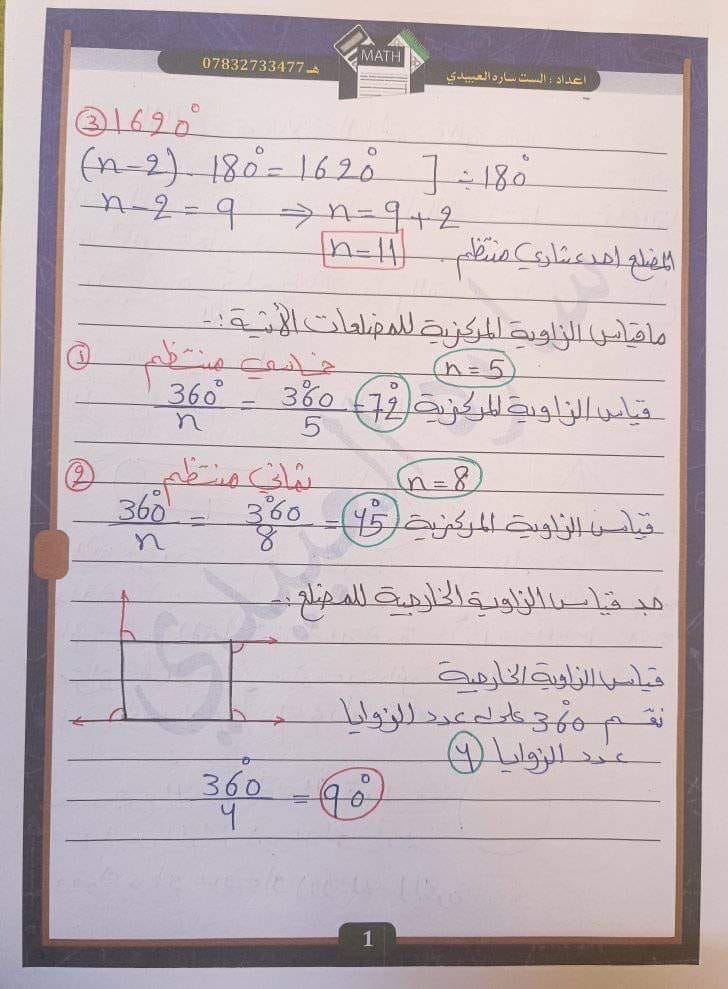 اعداد : الست ساره العبيدي
MATH
هـ 07832733477
③ 1620°
(n-2) . 180° = 1620° ] ÷ 180°
n-2 = 9 ⇒ n = 9+2
n = 11
المضلع احد عشاري منتظم .
ماقياس الزاوية المركزية للمضلعات الأتية :-
① خماسي منتظم n = 5
قياس الزاوية المركزية 360°/n = 360°/5 = 72°
② ثماني منتظم n = 8
قياس الزاوية المركزية 360°/n = 360°/8 = 45°
جد قياس الزاوية الخارجية للمضلع :-
قياس الزاوية الخارجية
نقسم 360° على عدد الزوايا
عدد الزوايا 4
360°/4 = 90°
1
ساره العبيدي